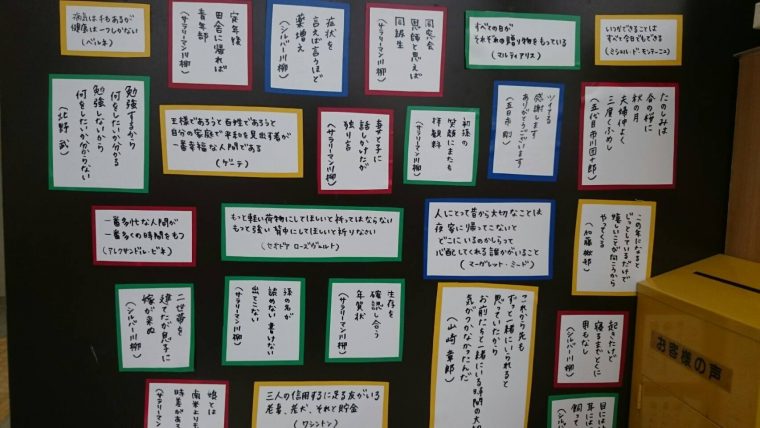 病気は千もあるが
健康は一つしかない
(ベルネ)
定年後
田舎に帰れば
青年部
(サラリーマン川柳)
症状を
言えば言うほど
薬増え
(シルバー川柳)
同窓会
恩師と思えば
同級生
(サラリーマン川柳)
すべての日が
それぞれの贈り物をもっている
(マルティアリス)
いつかできることは
すべて今日もできる
(ミシェル・ド・モンテーニュ)
勉強するから
何をしたいか分かる
勉強しないから
何をしたいか分からない
(北野 武)
王様であろうと百姓であろうと
自分の家庭で平和を見出す者が
一番幸福な人間である
(ゲーテ)
妻と子に
話しかけたが
独り言
(サラリーマン川柳)
初孫の
笑顔にまたも
拝観料
(サラリーマン川柳)
ツイてる
感謝します
ありがとうございます
(五日市 剛)
たのしみは
春の桜に
秋の月
夫婦仲よく
三度くふめし
(五代目市川団十郎)
一番多忙な人間が
一番多くの時間をもつ
(アレクサンドル・ビネ)
もっと軽い荷物にしてほしいと祈ってはならない
もっと強い背中にしてほしいと祈りなさい
(セオドア ルーズヴェルト)
人にとって昔から大切なことは
夜 家に帰ってこないと
どこにいるのかしらって
心配してくれる誰かがいること
(マーガレット・ミード)
この年になると
じっとしているだけで
嬉しいことが向こうから
やってくる
(加藤
二世帯を
建てたが息子に
嫁が来ぬ
(シルバー川柳)
孫の名が
読めない 書けない
出てこない
(サラリーマン川柳)
生存を
確認し合う
年賀状
(サラリーマン川柳)
これから先も
ずっと一緒にいられると
思っていたから
お前たちと一緒にいる時間の大切
気がつかなかったんだ
(山崎 章郎)
起きたけど
寝るまでとくに
用もなし
(シルバー川柳)
お客様の声
三人の信用するに足る友がいる
老妻、老犬、それと貯金
(ワシントン)
時差がある
(サラリーマン
目には
耳には
飼って
(シルバー